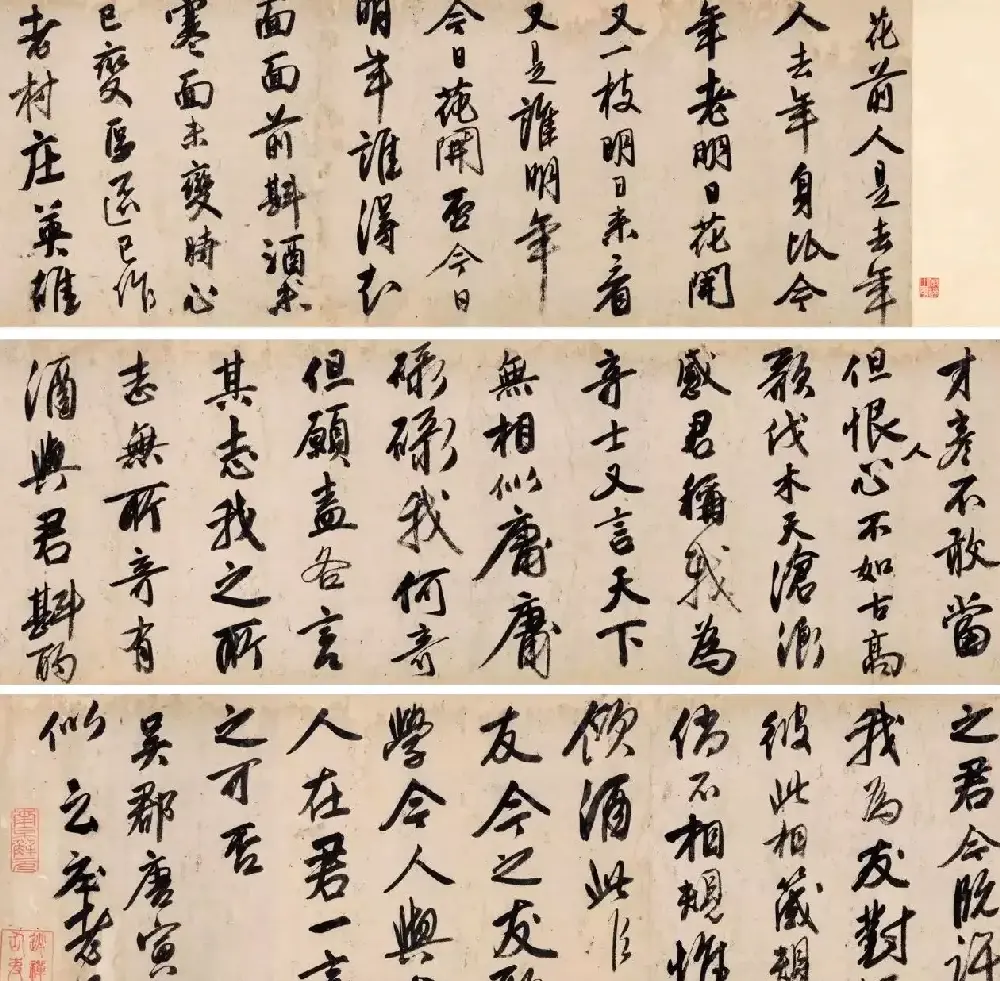 花前人是去年
人去年身比今
年老明日花開
又一枝明日来看
又是誰明年
今日花開否今日
明年誰得知
面面前斟酒未
寒面未變時心
已變區區已作
老村庄英雄
才彥不敢當
但恨人心不如古高
歌伐木天滄浪
感君稱我為
奇士又言天下
無相似庸庸
碌碌我何奇
但願盍各言
其志我之所
志無所奇有
酒與君斟酌
之君今既許
我為友對
彼此相箴規
倘不相規惟
飲酒此乃
友今之友
學今人與
人在君一言
之可否
吳郡唐寅
似云
南京解元